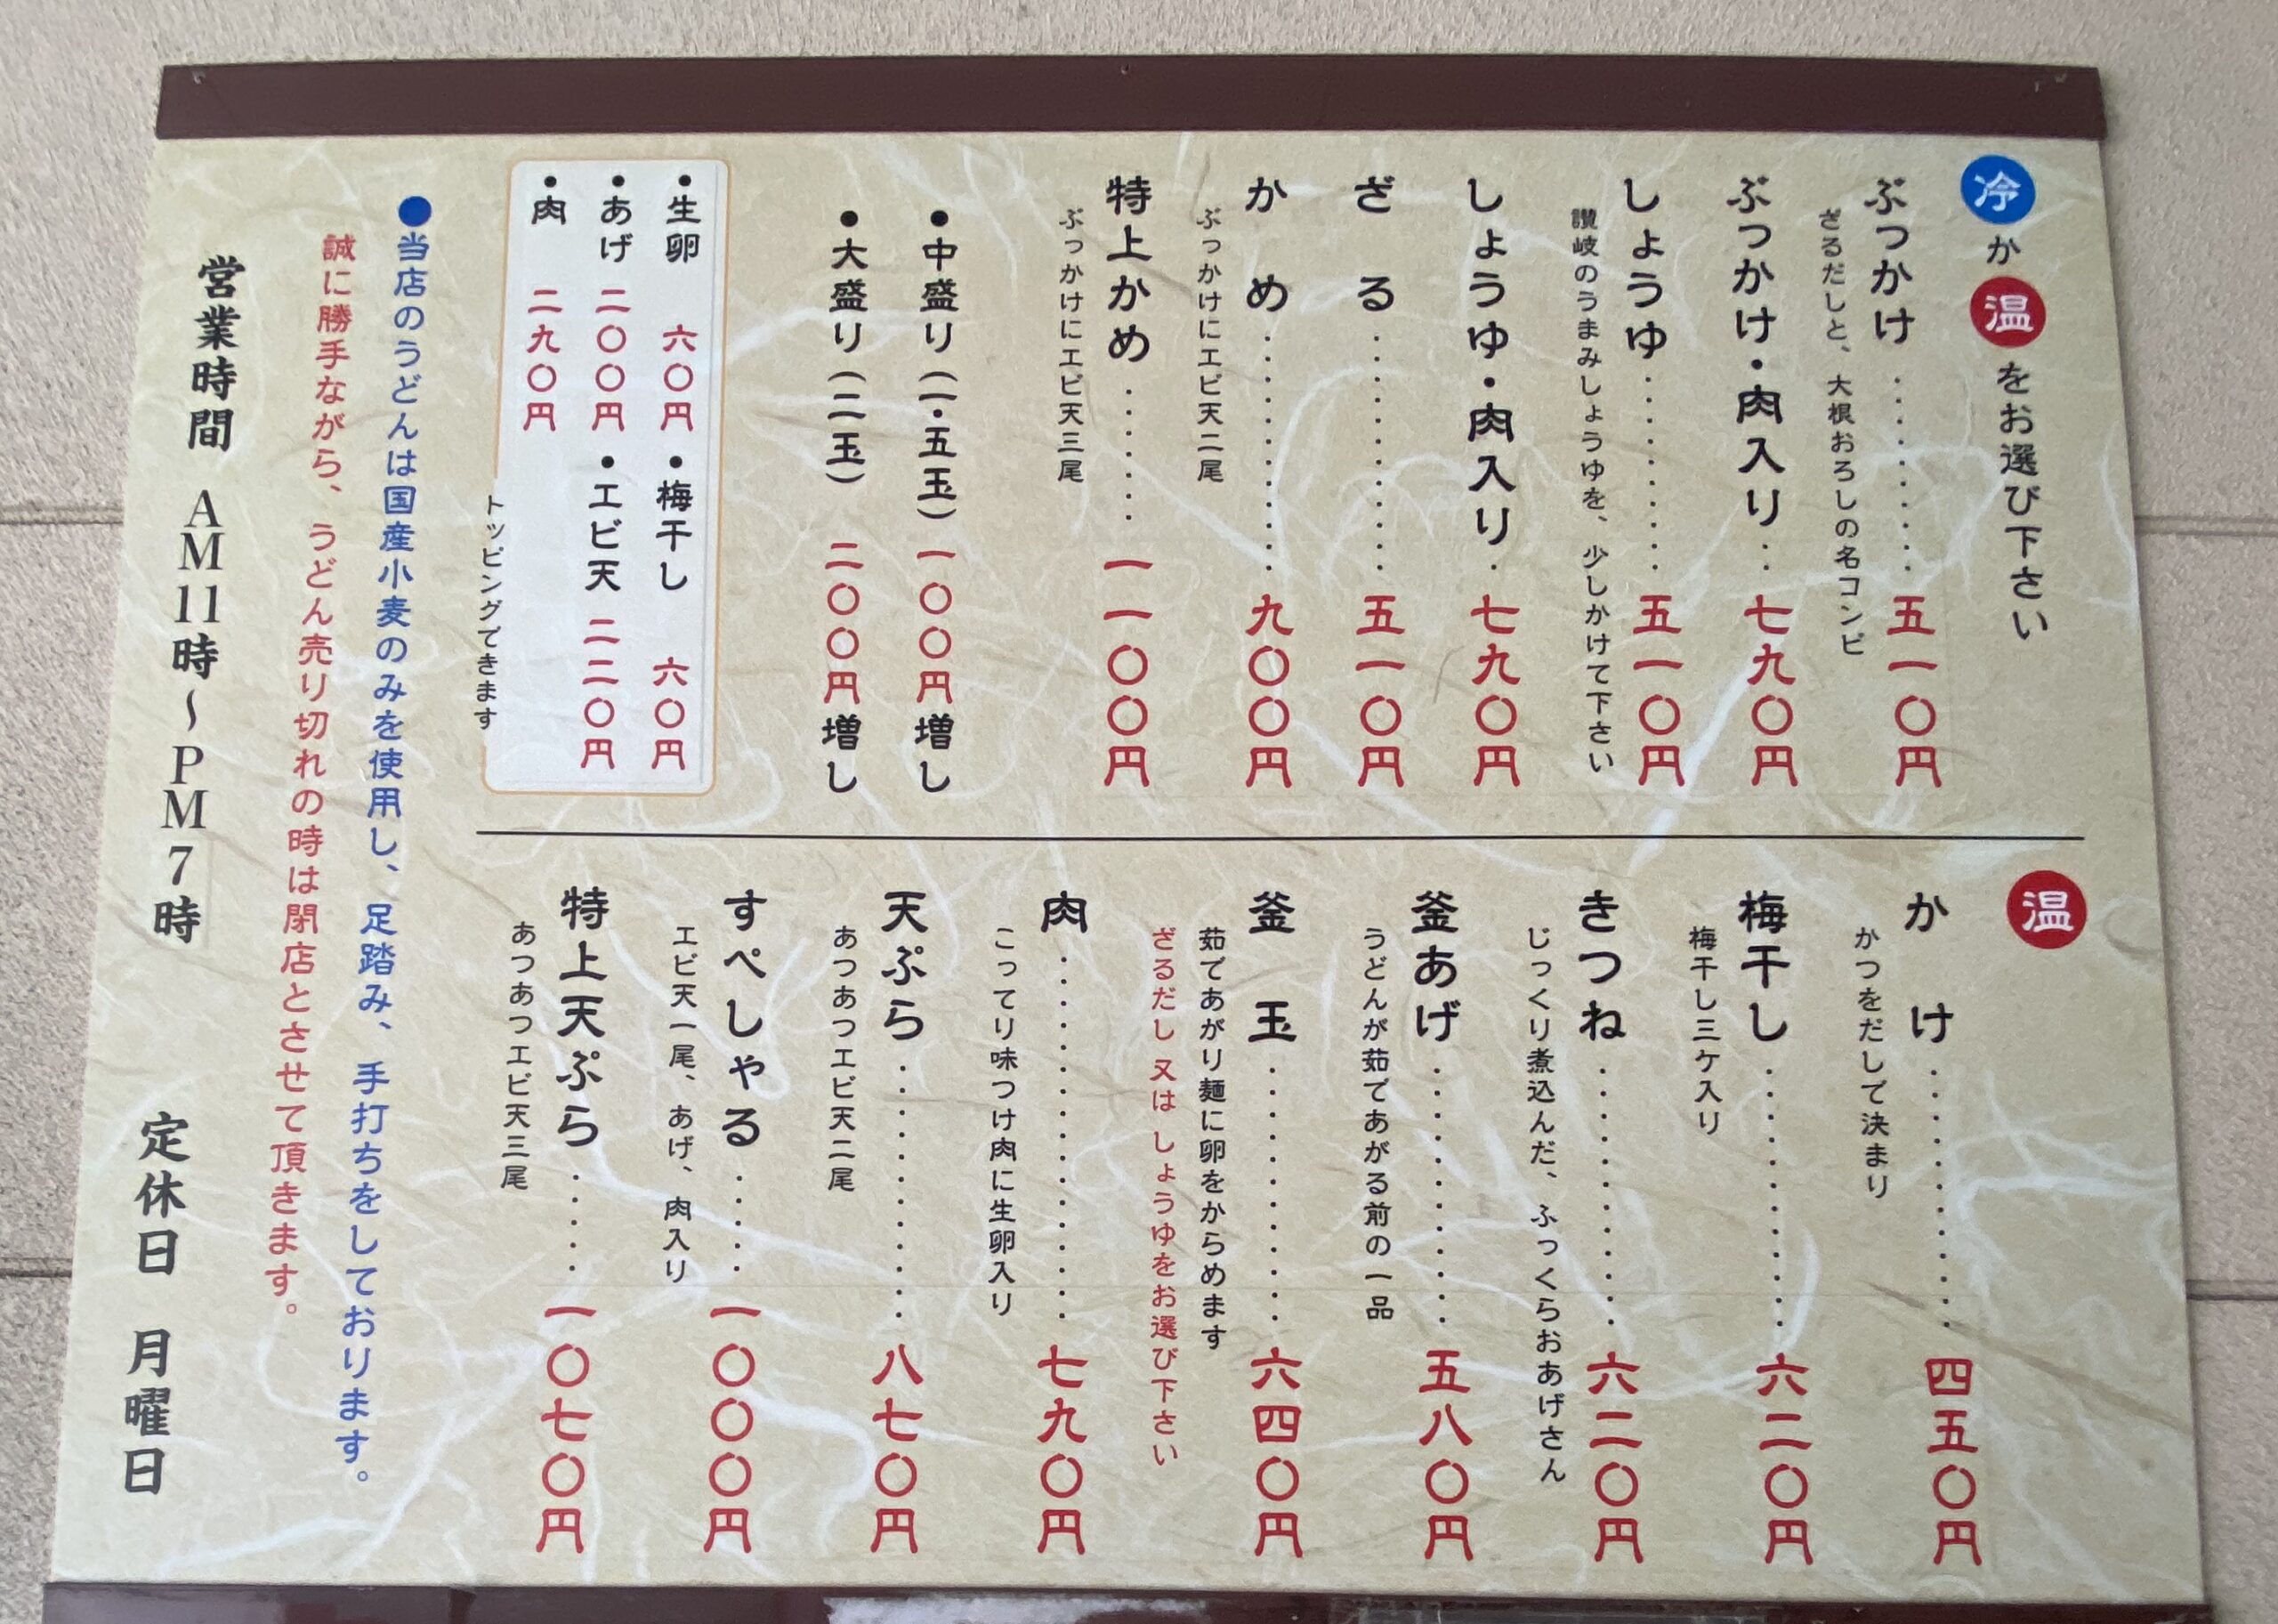 冷か温をお選び下さい
ぶっかけ・・・・・・・・五一〇円
ざるだしと、大根おろしの名コンビ
ぶっかけ・肉入り・・七九〇円
しょうゆ・・・・・・・・五一〇円
讃岐のうまみしょうゆを、少しかけて下さい
しょうゆ・肉入り・七九〇円
ざる・・・・・・・・・・五一〇円
かめ・・・・・・・・・・九〇〇円
ぶっかけにエビ天二尾
特上かめ・・・・・・・一一〇〇円
ぶっかけにエビ天三尾
●中盛り(一・五玉) 一〇〇円増し
●大盛り(二玉) 二〇〇円増し
・生卵 六〇円 ・梅干し 六〇円
・あげ 二〇〇円 ・エビ天 二二〇円
・肉 二九〇円
トッピングできます
温
かけ・・・・・・・・・・四五〇円
かつをだしで決まり
梅干し・・・・・・・・・・六二〇円
梅干し三ケ入り
きつね・・・・・・・・・・六二〇円
じっくり煮込んだ、ふっくらおあげさん
釜あげ・・・・・・・・・・五八〇円
うどんが茹であがる前の一品
釜玉・・・・・・・・・・六四〇円
茹であがり麺に卵をからめます
ざるだし又はしょうゆをお選び下さい
肉・・・・・・・・・・・・・・七九〇円
こってり味つけ肉に生卵入り
天ぷら・・・・・・・・・・八七〇円
あつあつエビ天二尾
すぺしゃる・・・・・一〇〇〇円
エビ天一尾、あげ、肉入り
特上天ぷら・・・・・一〇七〇円
あつあつエビ天三尾
●当店のうどんは国産小麦のみを使用し、足踏み、手打ちをしております。
誠に勝手ながら、うどん売り切れの時は閉店とさせて頂きます。
営業時間 AM11時〜PM7時 定休日 月曜日